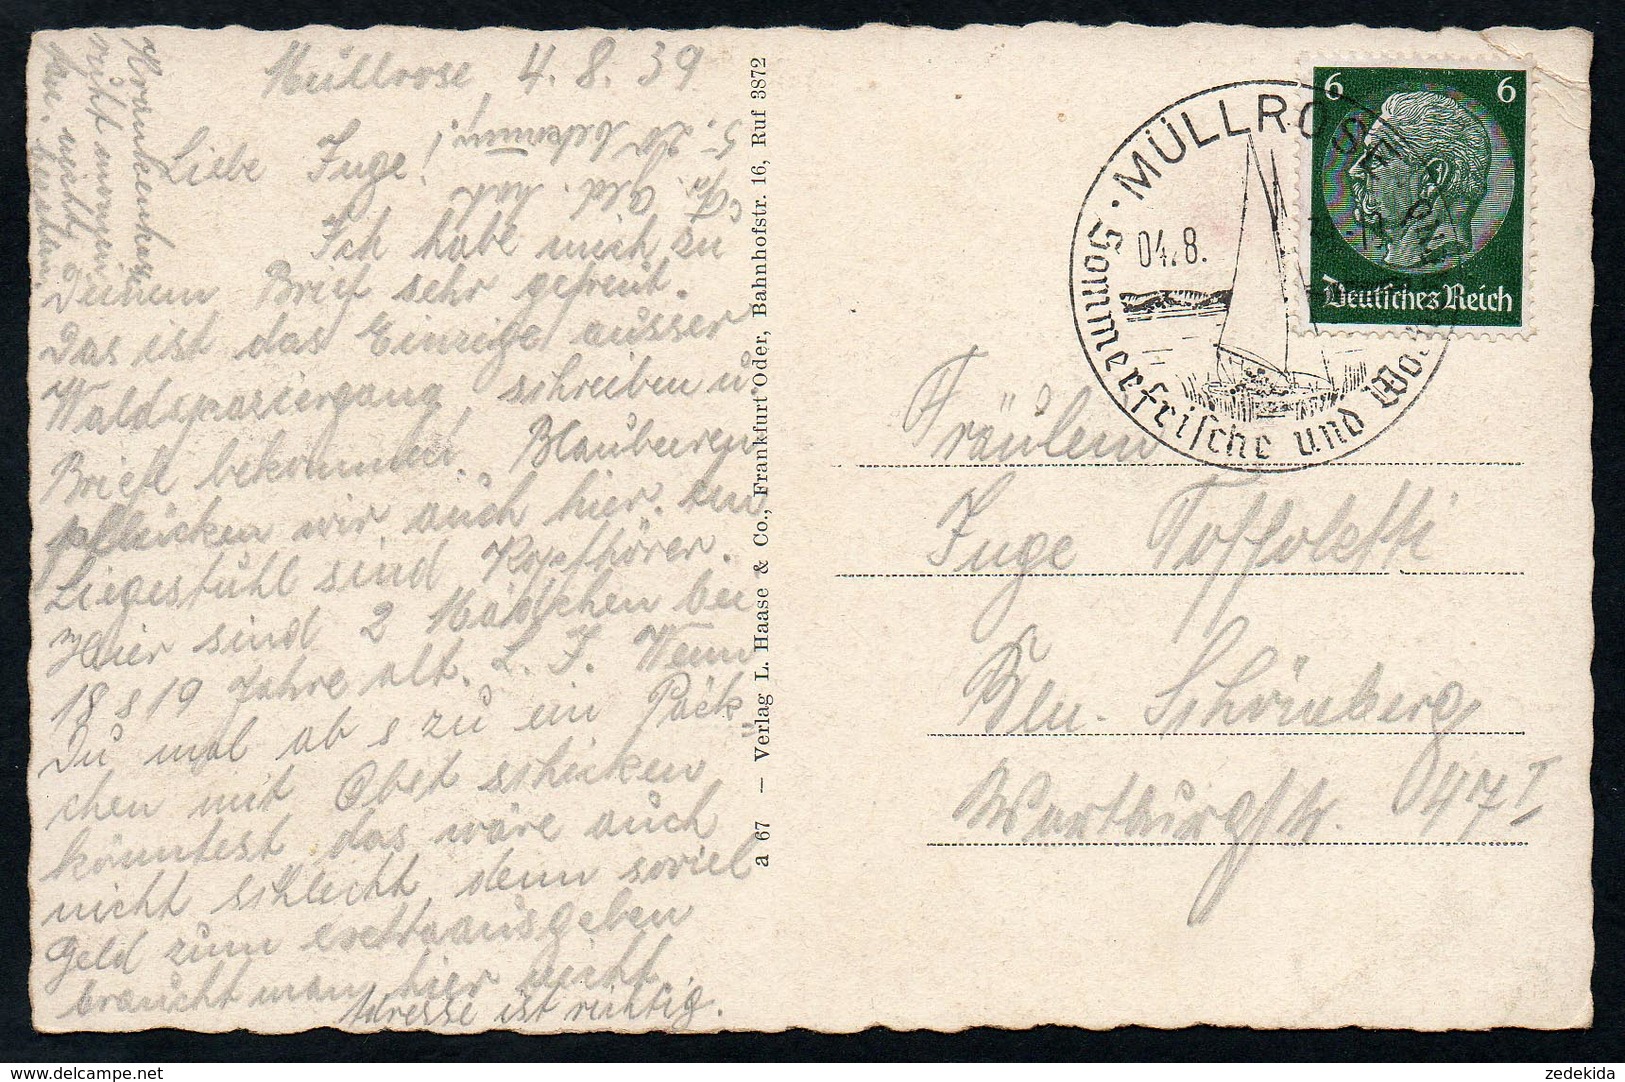 Müllrose 4.8.39
Liebe Inge!
Ich habe mich zu
Deinem Brief sehr gefreut.
Das ist das Einzige ausser
Waldspaziergang schreiben u.
Briefe bekommen. Blaubeeren
pflücken wir auch hier. Am
Liegestuhl sind Kopfhörer.
Hier sind 2 Mädchen bei
18 s 19 Jahre alt. L. I. Wenn
Du mal ab s zu ein Päck
chen mit Obst schicken
könntest das wäre auch
nicht schlecht denn soviel
Geld zum extraausgeben
braucht man hier nicht.
Adresse ist richtig.
Krankenhaus
nicht
nicht
bekommen!
a 67 — Verlag L. Haase & Co., Frankfurt Oder, Bahnhofstr. 16, Ruf 3872
MÜLLROSE
04.8.
Sommerfrische und
6 6
Deutsches Reich
Fräulein
Inge Toffoletti
Bln. Schöneberg
Wartburgstr. 47 I
delcampe.net
zedekida